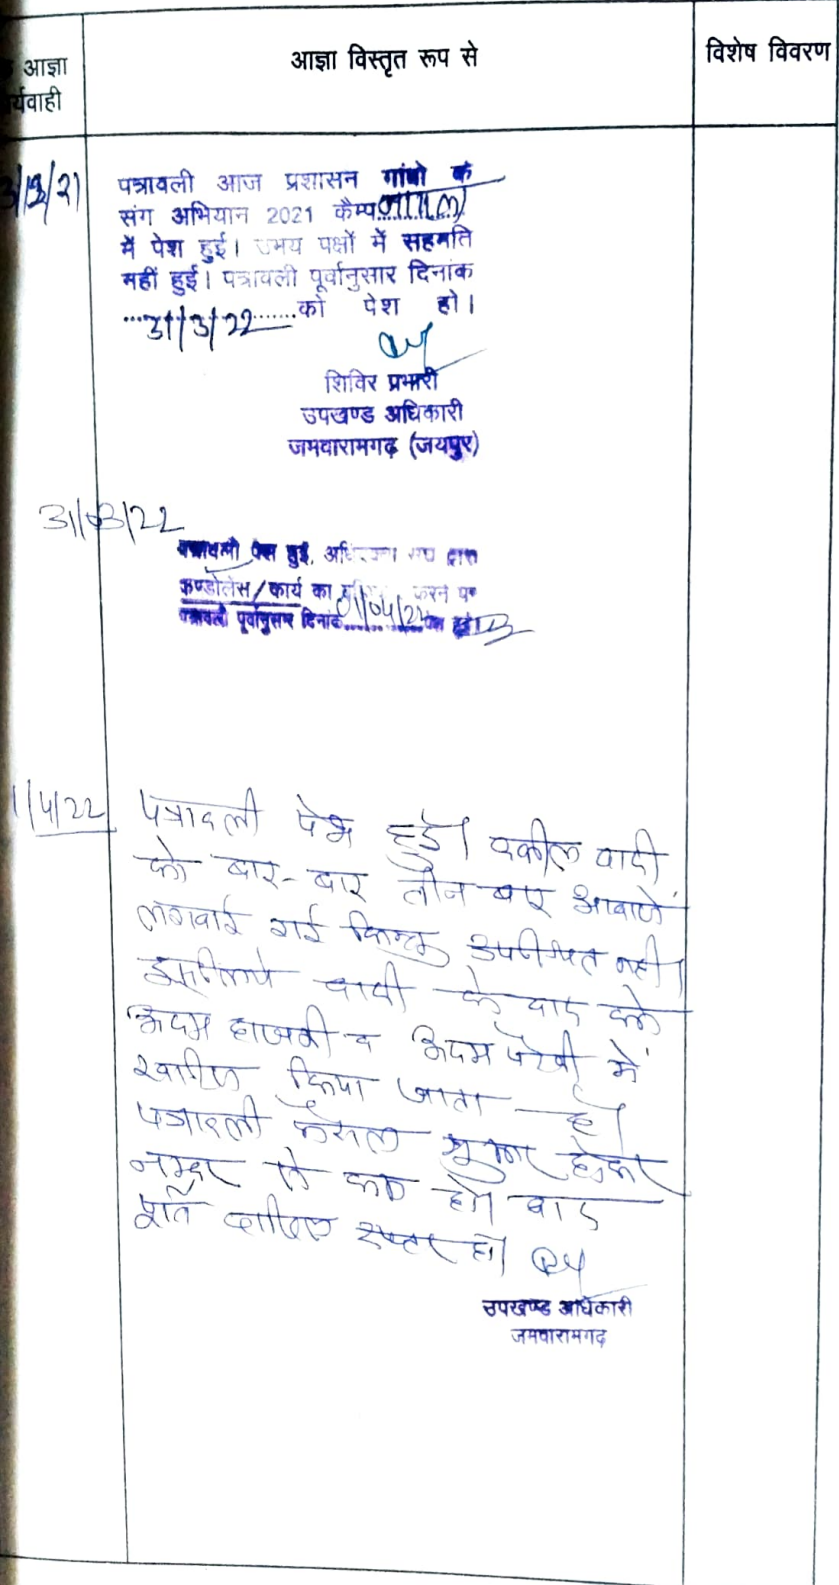 आज्ञा
र्यवाही
आज्ञा विस्तृत रूप से
विशेष विवरण
पत्रावली आज प्रशासन गांवो के
संग अभियान 2021 कैम्प
में पेश हुई। उभय पक्षों में सहमति
नहीं हुई। पत्रावली पूर्वानुसार दिनांक
31/3/22 को पेश हो।
शिविर प्रभारी
उपखण्ड अधिकारी
जमवारामगढ़ (जयपुर)
31/03/22
पत्रावली पेश हुई, द्वारा
कण्डोलेंस/कार्य का करने पर
पत्रावली पूर्वानुसार दिनांक 01/04/22 पेश हो।
1/4/22
पत्रावली पेश हुई। वकील वादी
को बार-बार तीन बार आवाजें
लगवाई गई किन्तु उपस्थित नहीं।
इसलिये वादी के वाद को
अदम हाजरी व अदम पैरवी में
खारिज किया जाता है।
पत्रावली फैसल शुमार होकर
नम्बर से कम हो। बाद
पूर्ति दाखिल दफ्तर हो।
उपखण्ड अधिकारी
जमवारामगढ़